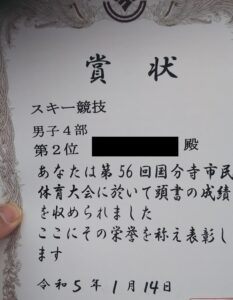 賞状
スキー競技
男子4部
第2位 殿
あなたは第56回国分寺市民
体育大会に於いて頭書の成績
を収められました
ここにその栄誉を称え表彰し
ます
令和5年1月14日